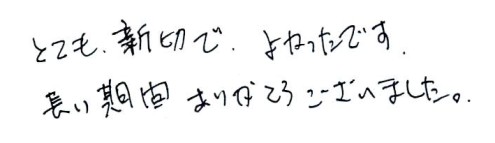 とても、新切で、よかったです、
長い期間ありがとうございました。